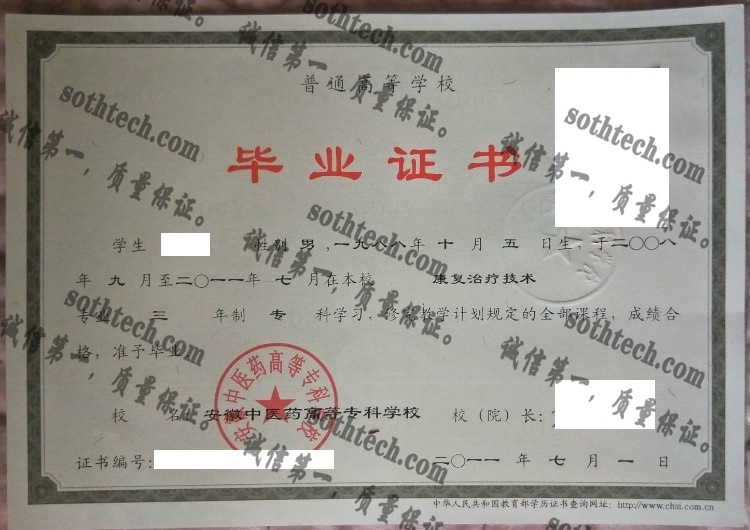 普通高等学校
毕业证书
学生 性别 男 ,一九八八年 十 月 五 日生,于二〇〇八
年 九 月至二〇一一年 七 月在本校 康复治疗技术
专业 三 年制 专 科学习,修完教学计划规定的全部课程,成绩合
格,准予毕业
校 名 安徽中医药高等专科学校 校(院)长:
安徽中医药高等专科学校
证书编号: 二〇一一 年 七 月 一 日
中华人民共和国教育部学历证书查询网址: http://www.chsi.com.cn
sothtech.com
诚信第一,质量保证。
sothtech.com
诚信第一,质量保证。
sothtech.com
诚信第一,质量保证。
sothtech.com
诚信第一,质量保证。
sothtech.com
诚信第一,质量保证。
sothtech.com
诚信第一,质量保证。
sothtech.com
诚信第一,质量保证。